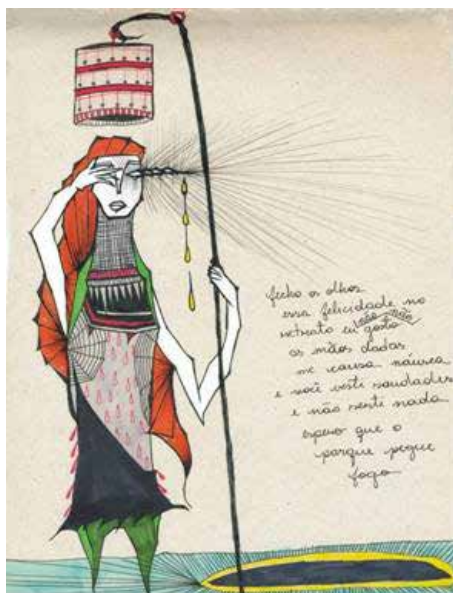 fecho os olhos
essa felicidade no
retrato eu gosto
não não
os mãos dadas
me causa náusea
e você veste saudades
e não sente nada
espero que o
parque pegue
fogo